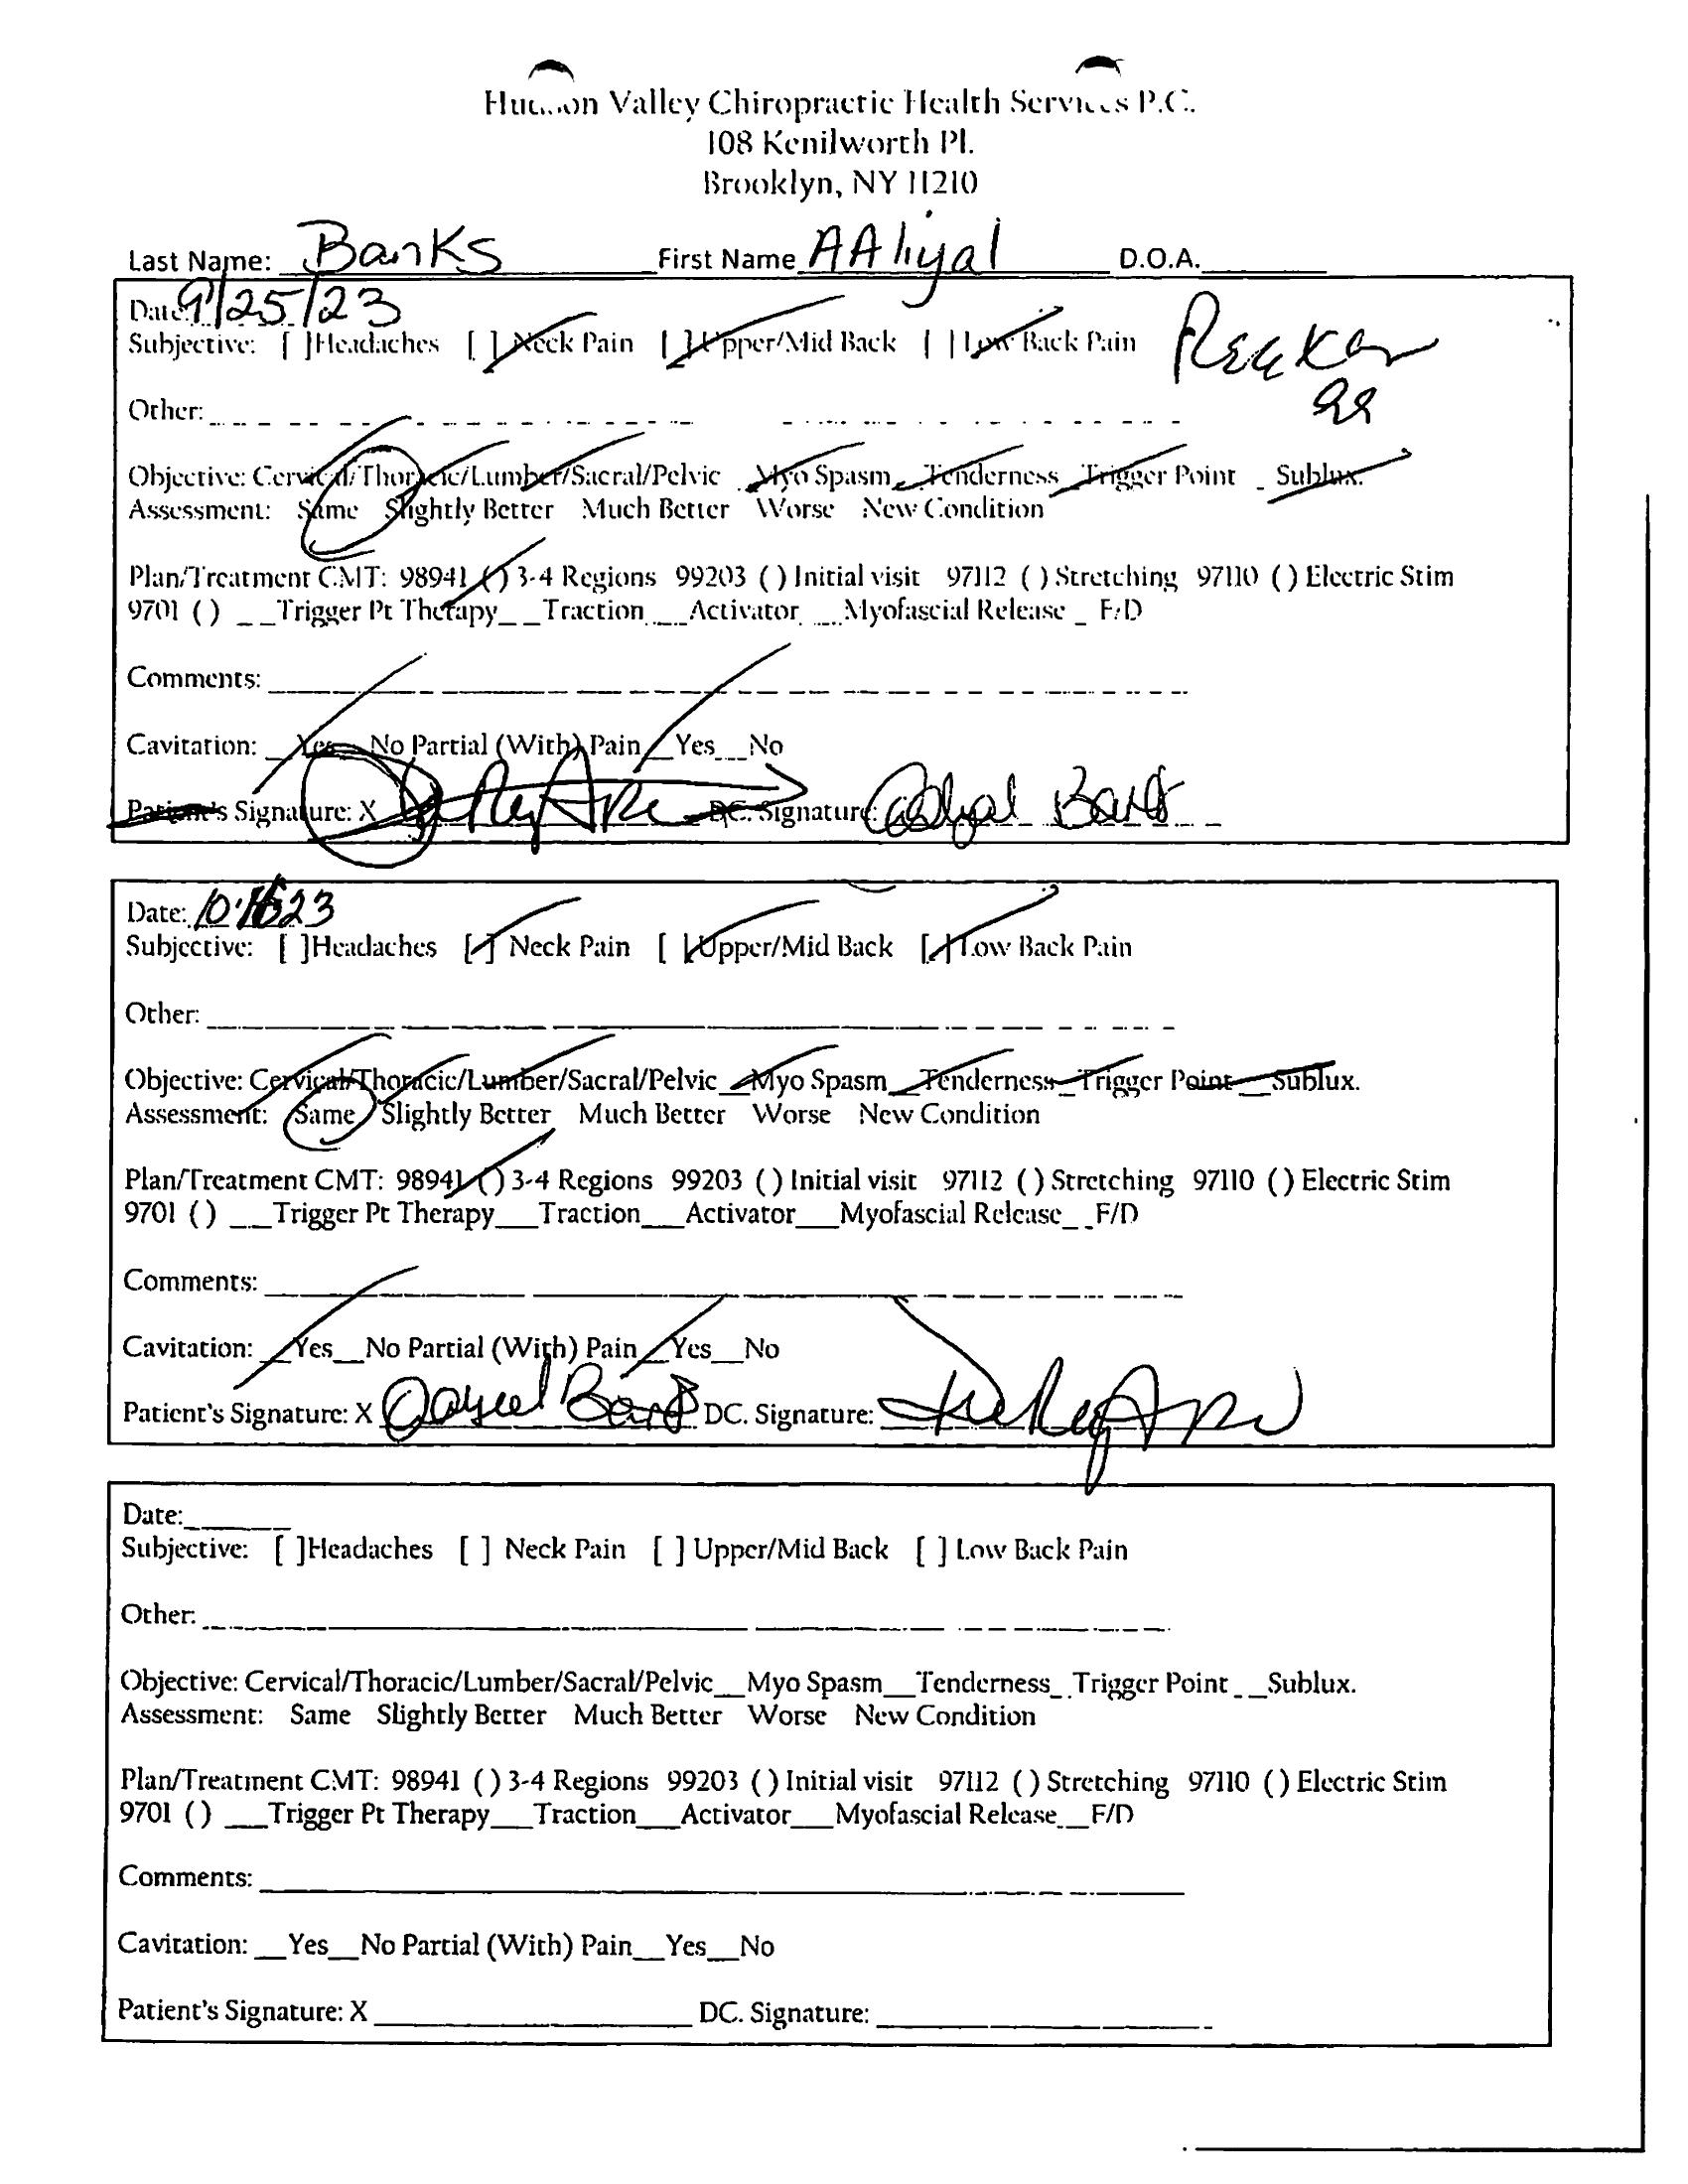 Hudson Valley Chiropractic Health Services P.C.
108 Kenilworth Pl.
Brooklyn, NY 11210
Last Name: Banks First Name AAliyal D.O.A.
Date: 9/25/23
Subjective: [ ]Headaches [ ] Neck Pain [ ] Upper/Mid Back [ ] Low Back Pain
Other:
Objective: Cervical/Thoracic/Lumber/Sacral/Pelvic __Myo Spasm__Tenderness__Trigger Point __Sublux.
Assessment: Same Slightly Better Much Better Worse New Condition
Plan/Treatment CMT: 98941 ( ) 3-4 Regions 99203 ( ) Initial visit 97112 ( ) Stretching 97110 ( ) Electric Stim
9701 ( ) __Trigger Pt Therapy__Traction__Activator__Myofascial Release__F/D
Comments:
Cavitation: __Yes__No Partial (With) Pain__Yes__No
Patient's Signature: X DC. Signature: Banks
Date: 23
Subjective: [ ]Headaches [ ] Neck Pain [ ] Upper/Mid Back [ ] Low Back Pain
Other:
Objective: Cervical/Thoracic/Lumber/Sacral/Pelvic__Myo Spasm__Tenderness__Trigger Point__Sublux.
Assessment: Same Slightly Better Much Better Worse New Condition
Plan/Treatment CMT: 98941 ( ) 3-4 Regions 99203 ( ) Initial visit 97112 ( ) Stretching 97110 ( ) Electric Stim
9701 ( ) __Trigger Pt Therapy__Traction__Activator__Myofascial Release__F/D
Comments:
Cavitation: __Yes__No Partial (With) Pain__Yes__No
Patient's Signature: X DC. Signature:
Date:
Subjective: [ ]Headaches [ ] Neck Pain [ ] Upper/Mid Back [ ] Low Back Pain
Other:
Objective: Cervical/Thoracic/Lumber/Sacral/Pelvic__Myo Spasm__Tenderness__Trigger Point__Sublux.
Assessment: Same Slightly Better Much Better Worse New Condition
Plan/Treatment CMT: 98941 ( ) 3-4 Regions 99203 ( ) Initial visit 97112 ( ) Stretching 97110 ( ) Electric Stim
9701 ( ) __Trigger Pt Therapy__Traction__Activator__Myofascial Release__F/D
Comments:
Cavitation: __Yes__No Partial (With) Pain__Yes__No
Patient's Signature: X DC. Signature: